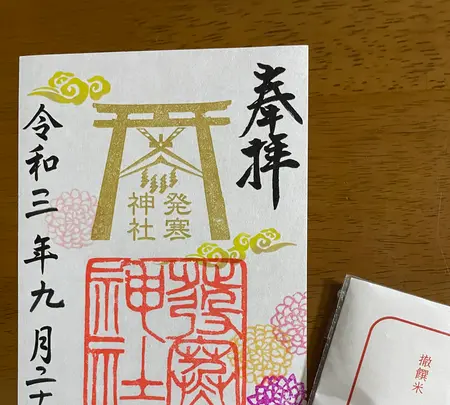 奉拝
発寒
神社
發寒
神社
令和三年九月二十
撤饌米